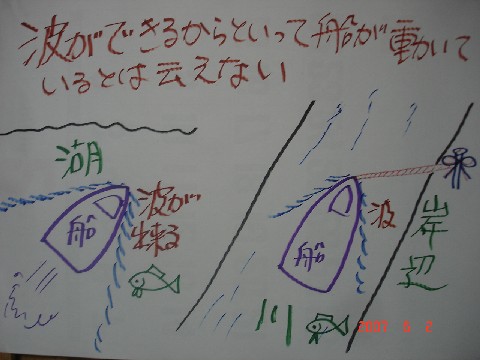 波ができるからといって船が動いて
いるとは云えない
湖
波が
出来る
船
波
船
岸辺
川
2007 6 2